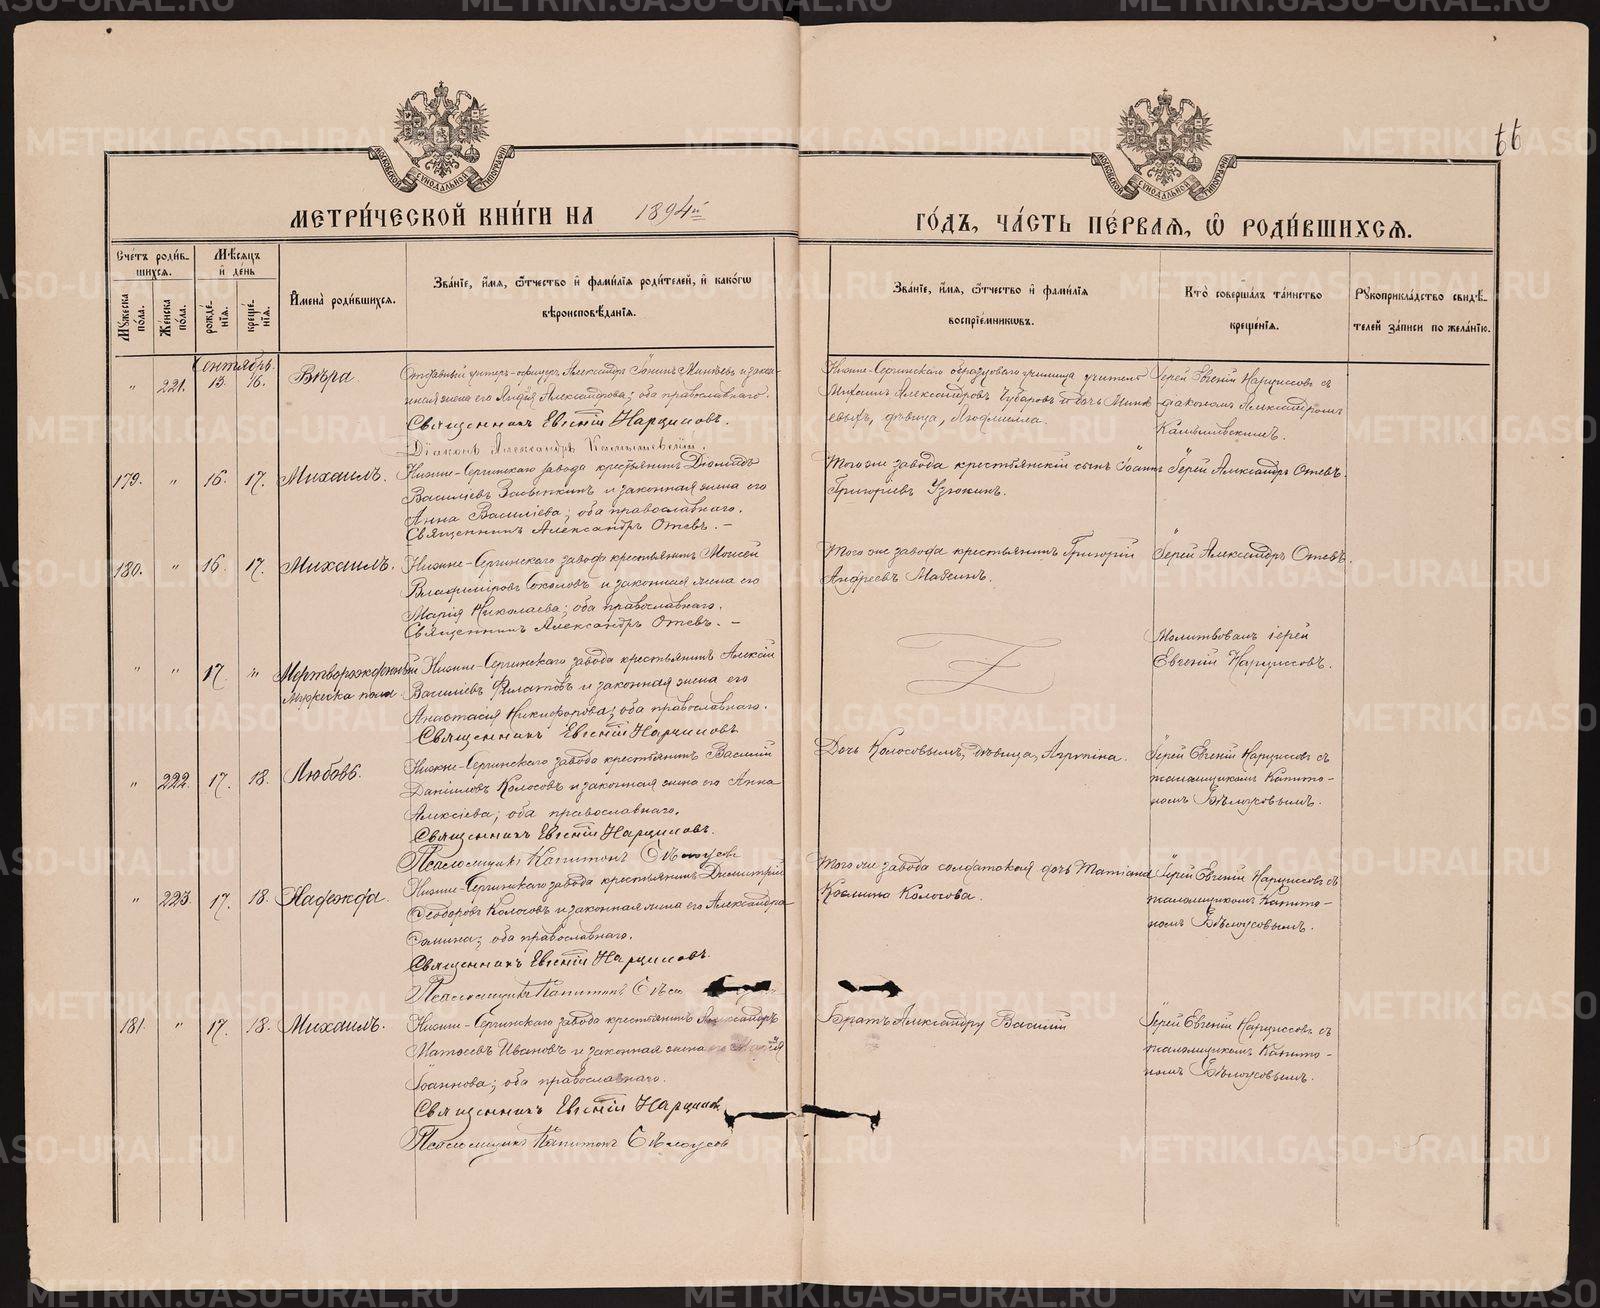 66
МЕТРИ́ЧЕСКОЙ КНИ́ГИ НА 1894й ГО́ДЪ, ЧА́СТЬ ПЕ́РВАЯ, Ѡ РОДИ́ВШИХСЯ.
МОСКОВСКОЙ СѴНОДАЛЬНОЙ ТИПОГРАФІИ
МОСКОВСКОЙ СѴНОДАЛЬНОЙ ТИПОГРАФІИ
Сче́тъ роди́вшихся.
Му́жеска по́ла.
Же́нска по́ла.
Мѣ́сяцъ и де́нь
рожде́нія.
креще́нія.
И̓мена̀ роди́вшихся.
Зва́ніе, и̓́мя, ѻ҆́тчество и҆ фами́лія роди́телей, и҆ како́гѡ вѣроисповѣ́данія.
Зва́ніе, и̓́мя, ѻ҆́тчество и҆ фами́лія воспріе́мникѡвъ.
Кто̀ соверша́лъ та́инство креще́нія.
Рꙋкоприкла́дство свидѣ́телей за́писи по жела́нію.
Сентябрь.
" 221. 13. 16. Вѣра
Отставный унтеръ-офицеръ Александръ Іонинъ Минѣевъ и закон-
ная жена его Лидія Александрова; оба православнаго.
Священникъ Евгеній Нарциссовъ.
Діаконъ Александръ
Нижне-Сергинскаго образцоваго училища учитель
Михаилъ Александровъ и дочь
дѣвица, Людмилла.
Іерей Евгеній Нарциссовъ съ
діакономъ Александромъ
179. " 16. 17. Михаилъ.
Нижне-Сергинскаго завода крестьянинъ Діомидъ
Василіевъ и законная жена его
Анна Василіева; оба православнаго.
Священникъ Александръ Отевъ. –
Того же завода крестьянскій сынъ Іоаннъ
Григоріевъ Узюкинъ.
Іерей Александръ Отевъ.
180. " 16. 17. Михаилъ.
Нижне-Сергинскаго завода крестьянинъ Моисей
Владиміровъ Соколовъ и законная жена его
Марія Николаева; оба православнаго.
Священникъ Александръ Отевъ. –
Того же завода крестьянинъ Григорій
Андреевъ Мазеинъ.
Іерей Александръ Отевъ
" " 17. " Мертворожденный
Мужеска пола
Нижне-Сергинскаго завода крестьянинъ Алексій
Василіевъ Филатовъ и законная жена его
Анастасія Никифорова; оба православнаго.
Священникъ Евгеній Нарциссовъ
Молитвовалъ іерей
Евгеній Нарциссовъ.
" 222. 17. 18. Любовь.
Нижне-Сергинскаго завода крестьянинъ Василій
Даніиловъ Колосовъ и законная жена его Анна
Алексіева; оба православнаго.
Священникъ Евгеній Нарциссовъ.
Псаломщикъ Капитонъ Бѣлоусовъ
Дочь Колосовымъ, дѣвица, Агрипина.
Іерей Евгеній Нарциссовъ съ
псаломщикомъ Капито-
номъ Бѣлоусовымъ.
" 223. 17. 18. Надежда.
Нижне-Сергинскаго завода крестьянинъ Димитрій
Ѳеодоровъ Колосовъ и законная жена его Александра
Ѳомина; оба православнаго.
Священникъ Евгеній Нарциссовъ.
Псаломщикъ Капитонъ
Того же завода солдатская дочь Татіана
Козмина Колосова.
Іерей Евгеній Нарциссовъ съ
псаломщикомъ Капито-
номъ Бѣлоусовымъ.
181. " 17. 18. Михаилъ.
Нижне-Сергинскаго завода крестьянинъ Александръ
Матѳеевъ Ивановъ и законная жена его Марія
Іоаннова; оба православнаго.
Священникъ Евгеній Нарциссовъ
Псаломщикъ Капитонъ Бѣлоусовъ
Братъ Александру Василій
Іерей Евгеній Нарциссовъ съ
псаломщикомъ Капито-
номъ Бѣлоусовымъ.
METRIKI.GASO-URAL.RU